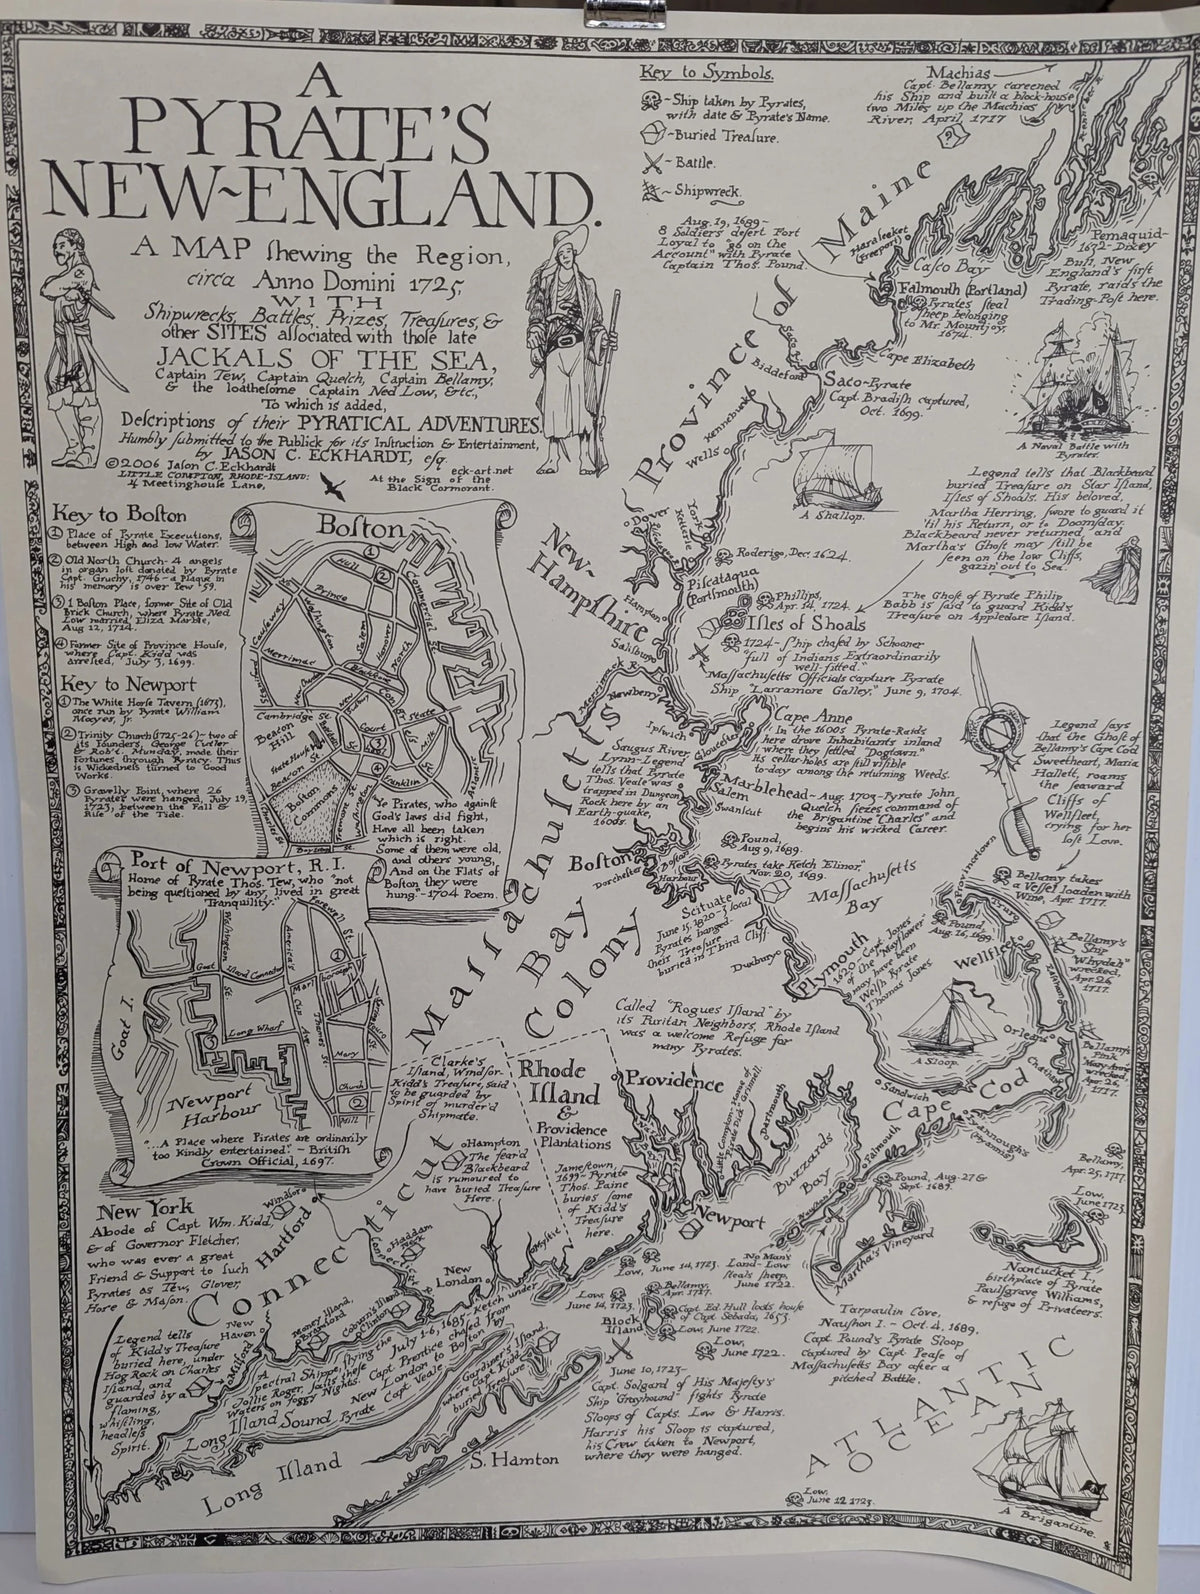 A
PYRATE'S
NEW-ENGLAND.
A MAP ſhewing the Region,
circa Anno Domini 1725,
WITH
Shipwrecks, Battles, Prizes, Treaſures, &
other SITES aſſociated with thoſe late
JACKALS OF THE SEA,
Captain Tew, Captain Quelch, Captain Bellamy,
& the loathſome Captain Ned Low, &tc.,
To which is added,
Deſcriptions of their PYRATICAL ADVENTURES.
Humbly ſubmitted to the Publick for its Inſtruction & Entertainment,
by JASON C. ECKHARDT, eſq
©2006 Jaſon C. Eckhardt
LITTLE COMPTON, RHODE-ISLAND:
4 Meetinghouſe Lane,
eck-art.net
At the Sign of the
Black Cormorant.
Key to Symbols.
~Ship taken by Pyrates,
with date & Pyrate's Name.
~Buried Treaſure.
~Battle.
~Shipwreck.
Machias
Capt. Bellamy careened
his Ship and built a block-houſe
two Miles up the Machias
River, April, 1717
?
Aug. 19, 1689~
8 Soldiers deſert Fort
Loyal to "go on the
Account" with Pyrate
Captain Thos. Pound.
Province of Maine
Haraſeeket
(Freeport)
Caſco Bay
Pemaquid-
1632-Dixey
Bull, New
England's firſt
Pyrate, raids the
Trading-Poſt here.
Falmouth (Portland)
Pyrates ſteal
Sheep belonging
to Mr. Mountjoy,
1674.
Cape Elizabeth
Saco
Biddeford
Saco-Pyrate
Capt. Bradiſh captured,
Oct. 1699.
Kennebunk
Wells
A Naval Battle with
Pyrates.
A Shallop.
Legend tells that Blackbeard
buried Treaſure on Star Iſland,
Iſles of Shoals. His beloved,
Martha Herring, ſwore to guard it
'til his Return, or to Doomſday.
Blackbeard never returned, and
Martha's Ghoſt may ſtill be
ſeen on the low Cliffs,
gazin' out to Sea.
The Ghoſt of Pyrate Philip
Babb is ſaid to guard Kidd's
Treaſure on Appledore Iſland.
Dover
York
Kittery
Roderigo, Dec. 1624.
Piſcataqua
(Portſmouth)
Phillips,
Apr. 14, 1724.
Iſles of Shoals
New-
Hampſhire
Hampton
Saliſbury
1724~Ship chaſed by Schooner
"full of Indians Extraordinarily
well-fitted."
Maſſachuſetts Officials capture Pyrate
Ship "Larramore Galley," June 9, 1704.
Merrimack R.
Newberry
Ipſwich
Glouceſter
Cape Anne
In the 1600s Pyrate-Raids
here drove Inhabitants inland
where they ſettled "Dogtown".
Its cellar-holes are ſtill viſible
to-day among the returning Weeds.
Saugus River
Lynn-Legend
tells that Pyrate
Thos. Veale was
trapped in Dungeon
Rock here by an
Earth-quake,
1600s.
Marblehead~Aug. 1703~Pyrate John
Quelch ſiezes command of
the Brigantine "Charles" and
begins his wicked Career.
Salem
Swanſcut
Legend ſays
that the Ghoſt of
Bellamy's Cape Cod
Sweetheart, Maria
Hallett, roams
the ſeaward
Cliffs of
Wellfleet,
crying for her
loſt Love.
Boſton
Dorcheſter
Boſton
Harbour
Pound,
Aug. 9, 1689.
Pyrates take Ketch "Elinor,"
Nov. 20, 1689.
Maſſachuſetts
Bay
Scituate
June 15, 1820~3 local
Pyrates hanged.
their Treaſure
buried in Third Cliff.
Duxbury
Plymouth
1620~Capt. Jones
of the "Mayflower"
may have been
Welſh Pyrate
Thomas Jones
Provincetown
Truro
Bellamy takes
a Veſſel loaden with
Wine, Apr. 1717.
Pound,
Aug. 16, 1689.
Wellfleet
Eaſtham
Bellamy's
Ship
"Whydah"
wrecked,
Apr. 26,
1717.
Orleans
Chatham
Bellamy's
Pink
"Mary Anne"
wrecked,
Apr. 26,
1717.
A Sloop.
Sandwich
Cape Cod
Hyannough's
(Hyannis)
Falmouth
Bellamy,
Apr. 25, 1717.
Maſſachuſetts
Bay
Colony
Called "Rogues Iſland" by
its Puritan Neighbors, Rhode Iſland
was a welcome Refuge for
many Pyrates.
Key to Boſton
① Place of Pyrate Executions,
between High and low Water.
② Old North Church~4 angels
in organ loft donated by Pyrate
Capt. Gruchy, 1746~a Plaque in
his memory is over Pew 59.
③ 1 Boſton Place, former Site of Old
Brick Church, where Pyrate Ned
Low married Eliza Marble,
Aug 12, 1714.
④ Former Site of Province Houſe,
where Capt. Kidd was
arreſted, July 3, 1699.
Key to Newport
① The White Horſe Tavern (1673),
once run by Pyrate William
Mayes, Jr.
② Trinity Church (1725-26)~two of
its Founders, George Cutler
& Robt. Munday, made their
Fortunes through Pyracy. Thus
is Wickedneſs turned to Good
Works.
③ Gravelly Point, where 26
Pyrates were hanged, July 19,
1723, between the Fall &
Riſe of the Tide.
Boſton
1
Hull
2
Prince
Commercial
Cauſeway
Waſhington
Salem
Hanover
North
Merrimac
Cambridge St
Beacon
Hill
State Houſe
Beacon St
Boſton
Commons
Court
State
3
Milk
4
Franklin St
Tremont St
Waſhington
Charles St
Boylſton
Ye Pirates, who againſt
God's laws did fight,
Have all been taken
which is right.
Some of them were old,
and others young,
And on the Flats of
Boſton they were
hung."~1704 Poem.
Port of Newport, R.I.
Home of Pyrate Thos. Tew, who "not
being queſtioned by any, lived in great
Tranquility."
Farewell
St.
Waſhington
St.
America's
Cup
Ave
Goat Iſland Connector
Marlborough
1
Thames St
Long Wharf
3
Mary
Church
2
Mill
Goat I.
Newport
Harbour
"...A Place where Pirates are ordinarily
too Kindly entertained."~Britiſh
Crown Official, 1697.
Clarke's
Iſland, Windſor~
Kidd's Treaſure, ſaid
to be guarded by
Spirit of murder'd
Shipmate.
Rhode
Iſland
&
Providence
Plantations
Providence
Little Compton~Home of
Pirate Dick Grinnell
Dartmouth
Buzzards
Bay
Hampton
The fear'd
Blackbeard
is rumoured to
have buried Treaſure
Here.
Jameſtown,
1699~Pyrate
Thos. Paine
buries ſome
of Kidd's
Treaſure
here.
Newport
Pound, Aug. 27 &
Sept. 1689.
Martha's Vineyard
Low,
June 1723.
Nantucket I.,
birthplace of Pyrate
Paulſgrave Williams,
& refuge of Privateers.
New York
Abode of Capt. Wm. Kidd,
& of Governor Fletcher,
who was ever a great
Friend & Support to ſuch
Pyrates as Tew, Glover,
Hore & Maſon.
Windſor
Hartford
Connecticut
Haddam
New
London
Myſtic
Low, June 14, 1723.
No Man's
Land~Low
ſteals ſheep,
June 1722.
Low,
June 14, 1723.
Bellamy,
Apr. 1717.
Capt. Ed. Hull loots houſe
of Capt. Sebada, 1653.
Block
Iſland
Low, June 1722.
Low,
June 1722.
Tarpaulin Cove,
Nauſhon I.~Oct. 4, 1689,
Capt. Pound's Pyrate Sloop
captured by Capt. Peaſe of
Maſſachuſetts Bay after a
pitched Battle.
June 10, 1723~
Capt. Solgard of His Majeſty's
Ship "Grayhound" fights Pyrate
Sloops of Capts. Low & Harris.
Harris his Sloop is captured,
his Crew taken to Newport,
where they were hanged.
Legend tells
of Kidd's Treaſure
buried here, under
Hog Rock on Charles
Iſland, and
guarded by a
flaming,
whiſtling,
headleſs
Spirit.
New
Haven
Milford
Money Iſland,
Branford
Clinton
A
Spectral Shippe, flying the
Jollie Roger, ſails theſe
Waters on foggy Nights.
July 1-6, 1685~Ketch under
Capt. Prentice chaſed from
New London to Boſton by
Pyrate Capt. Veale
Long Iſland Sound
Gardiner's Iſland,
where Capt. Kidd
buried Treaſure
Long Iſland
S. Hamton
ATLANTIC
OCEAN
Low,
June 12 1723.
A Brigantine.